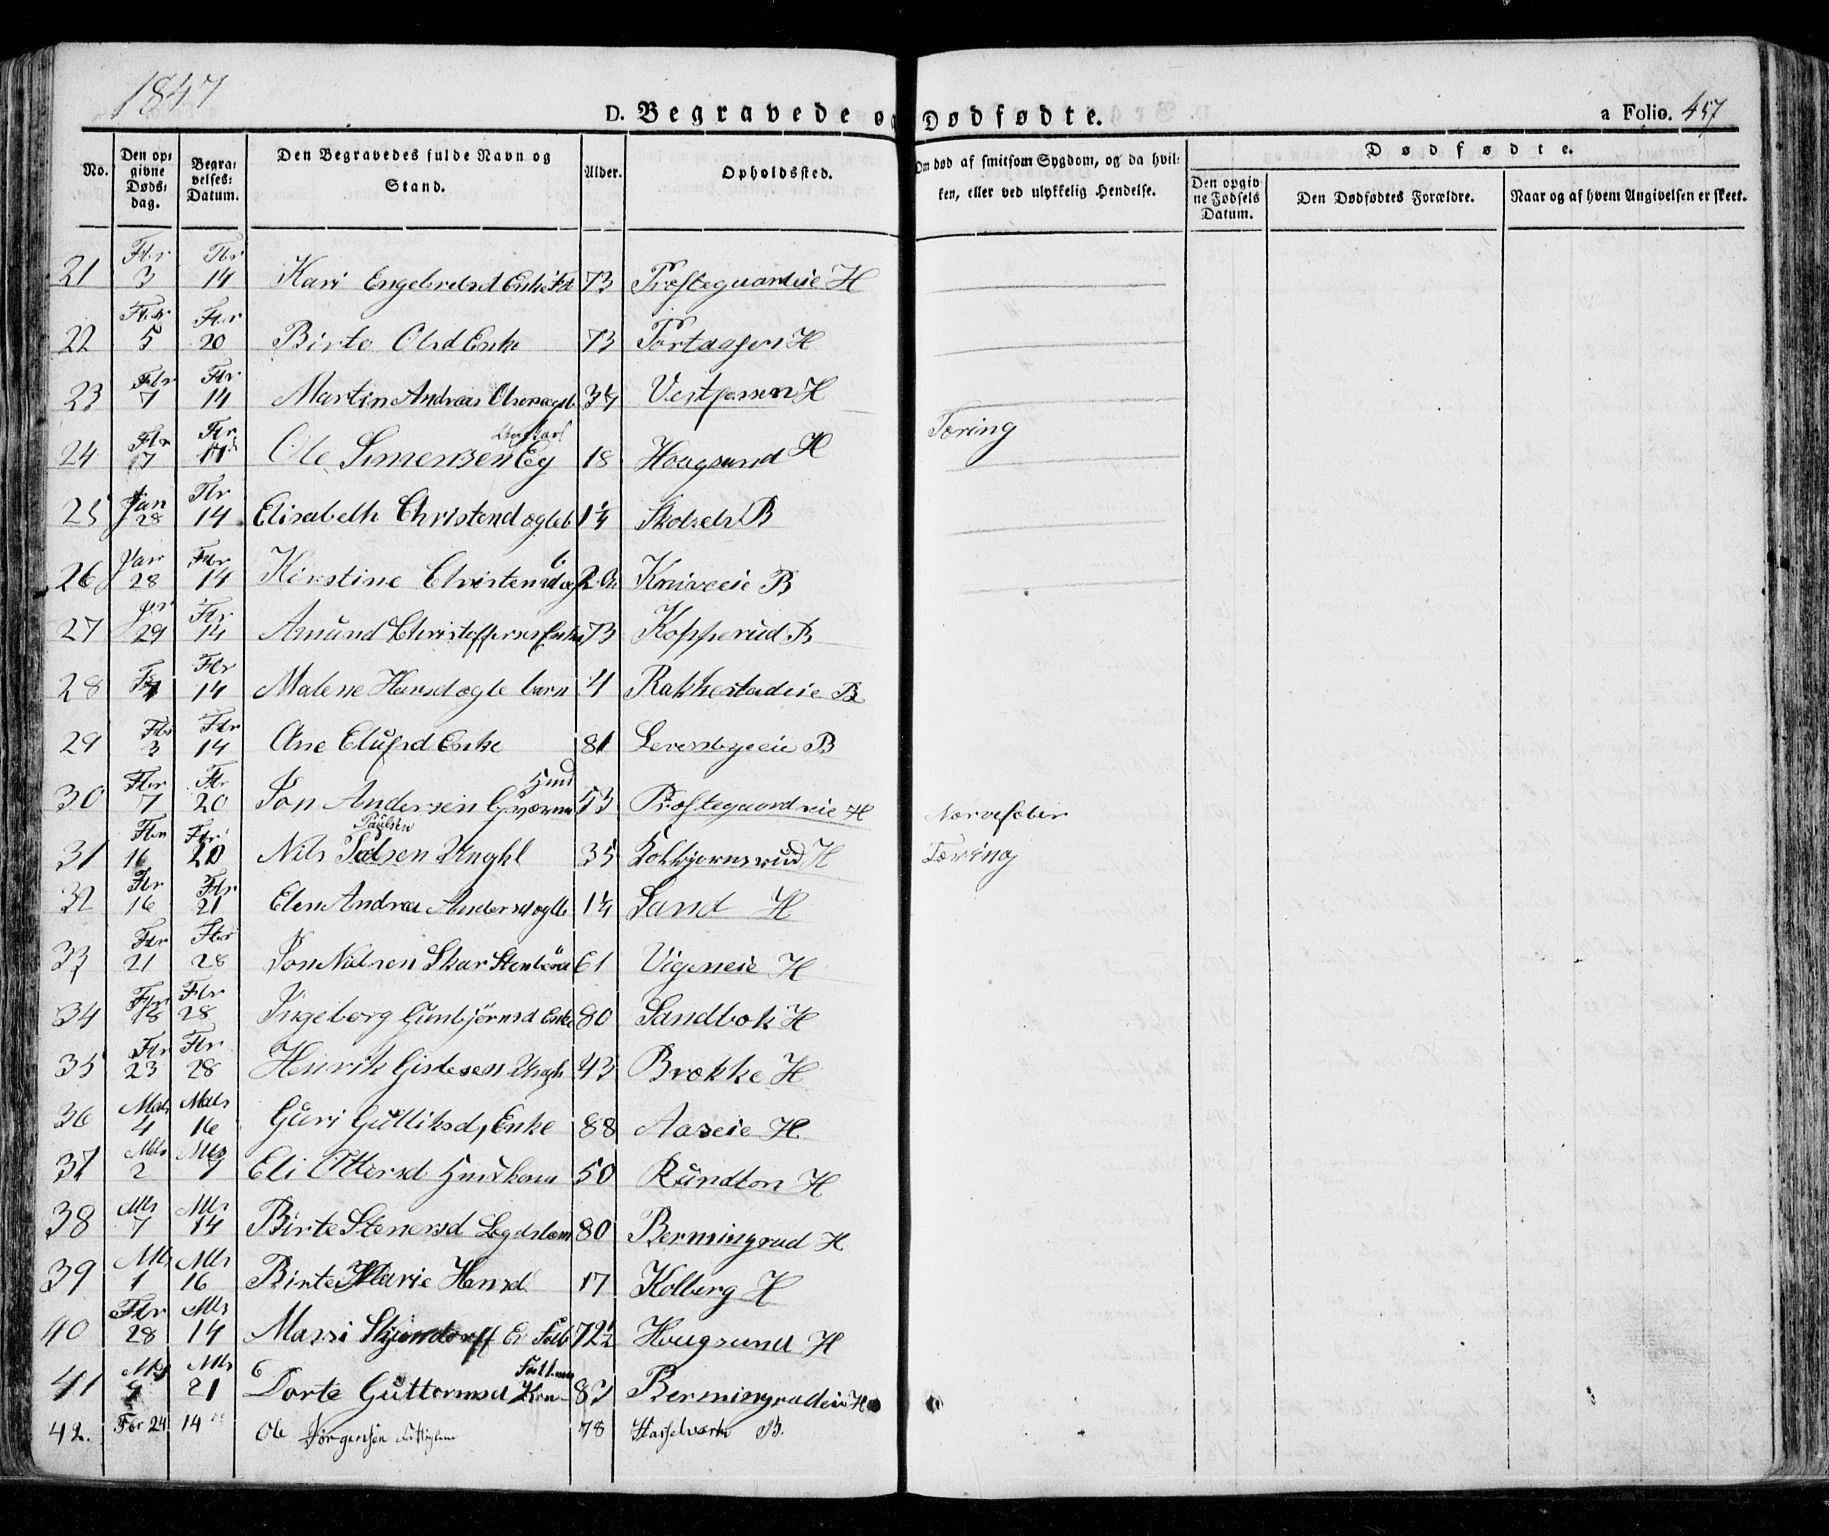 1847
D. Begravede og Dødfødte. a Folio. 457
No. Den opgivne Dødsdag. Begravelses-Datum. Den Begravedes fulde Navn og Stand. Alder. Opholdssted. Om død af smitsom Sygdom, og da hvilken, eller ved ulykkelig Hendelse. Dødfødte.
Den opgivne Fødsels Datum. Den Dødfødtes Forældre. Naar og af hvem Angivelsen er skeet.
21 Fbr 3 Fbr 14 Kari Engebretsd Enke 73 Præstegaardeie H
22 Fbr 5 Fbr 20 Birte Olsd Enke 73 H
23 Fbr 7 Fbr 14 Martin Andreas Olsen 3 Vestfossen H
24 Fbr 7 Fbr Ole Simensen Eg 18 Hougsund H Tæring
25 Jan 28 Fbr 14 Elisabeth Christensd ægteb 1¼ Skotselv B
26 Jan 28 Fbr 14 Kirstine Christensd 2 Kniveeie B
27 Jan 29 Fbr 14 Amund Christoffersen 73 Kopperud B
28 Fbr 14 Malene Hansd ægte barn 4 Rakkestadeie B
29 Fbr 3 Fbr 14 Ane Elufsd Enke 81 Leversbyeie B
30 Fbr 7 Fbr 20 Jon Andersen 53 Præstegaardseie H Nervefeber
31 Fbr 16 Fbr 20 Nils Paulsen Ungkl 35 Kolbjørnsrud H Tæring
32 Fbr 16 Fbr 21 Elen Andrea Andersd ægtb 1¼ Sand H
33 Fbr 21 Fbr 28 Jon Nilsen Skar 61 Vigeneie H
34 Fbr 18 Fbr 28 Ingeborg Gunbjörnsd Enke 80 Sandbok H
35 Fbr 23 Fbr 28 Henrik Gislesen Ungk 43 Brække H
36 Mts 4 Mts 16 Guri Gulliksd, Enke 88 Aaseie H
37 Mts 2 Mts 7 Eli Ottersd 50 Rundton H
38 Mts 7 Mts 14 Birte Stenersd Legdslem 80 Bermingrud H
39 Mts 1 Mts 16 Birte Marie Hansd 17 Kolberg H
40 Fbr 28 Mts 14 Massi Skjendorff 72½ Hougsund H
41 Mts Mts 21 Dorte Guttormsd 83 Bermingrudeie H
42. Fbr 24 14 Ole Jörgensen 78 Hasselverk B.